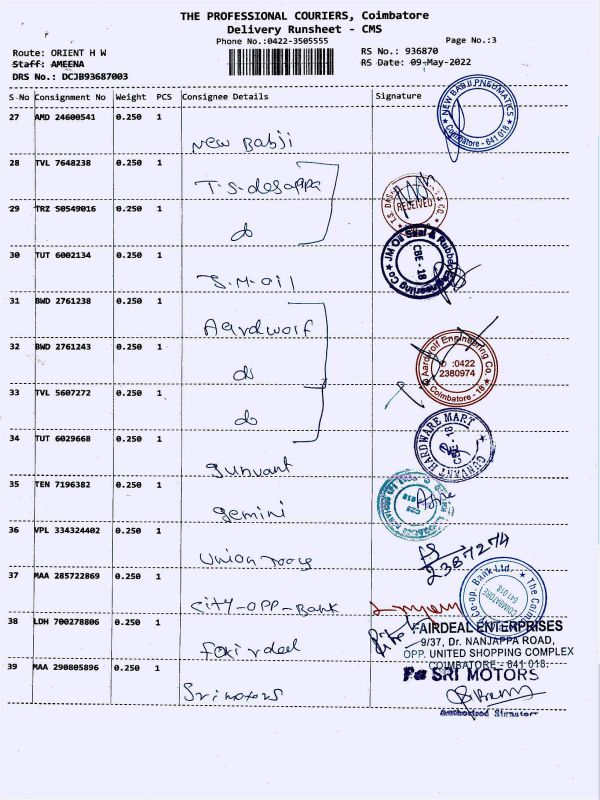 THE PROFESSIONAL COURIERS, Coimbatore
Delivery Runsheet - CMS
Phone No.:0422-3505555
Page No.:3
Route: ORIENT H W
RS No.: 936870
Staff: AMEENA
RS Date: 09-May-2022
DRS No.: DCJB93687003
S No Consignment No Weight PCS Consignee Details Signature
27 AMD 24600541 0.250 1
New Babji
NEW BABJI PNEUMATICS
Coimbatore - 641 018
28 TVL 7648238 0.250 1
T.S. desappa
29 TRZ 50549016 0.250 1
do
RECEIVED
30 TUT 6002134 0.250 1
J.M. oil
JM Oil Seal & Rubber Engineering Co
CBE - 18
31 BWD 2761238 0.250 1
Aardwolf
32 BWD 2761243 0.250 1
do
Aardwolf Engineering Co.
✆ :0422
2380974
Coimbatore - 18
33 TVL 5607272 0.250 1
do
34 TUT 6029668 0.250 1
gunvant
GUNVANT HARDWARE MART
CBE - 18
35 TEN 7196382 0.250 1
gemini
36 VPL 334324402 0.250 1
union Tools
2387274
37 MAA 285722869 0.250 1
city-opp-Bank
Co-op. Bank Ltd.
COIMBATORE
641 018
38 LDH 700278806 0.250 1
fairdeal
FAIRDEAL ENTERPRISES
9/37, Dr. NANJAPPA ROAD,
OPP. UNITED SHOPPING COMPLEX
COIMBATORE - 641 018.
39 MAA 290805896 0.250 1
Sri motors
For SRI MOTORS
Authorised Signatory